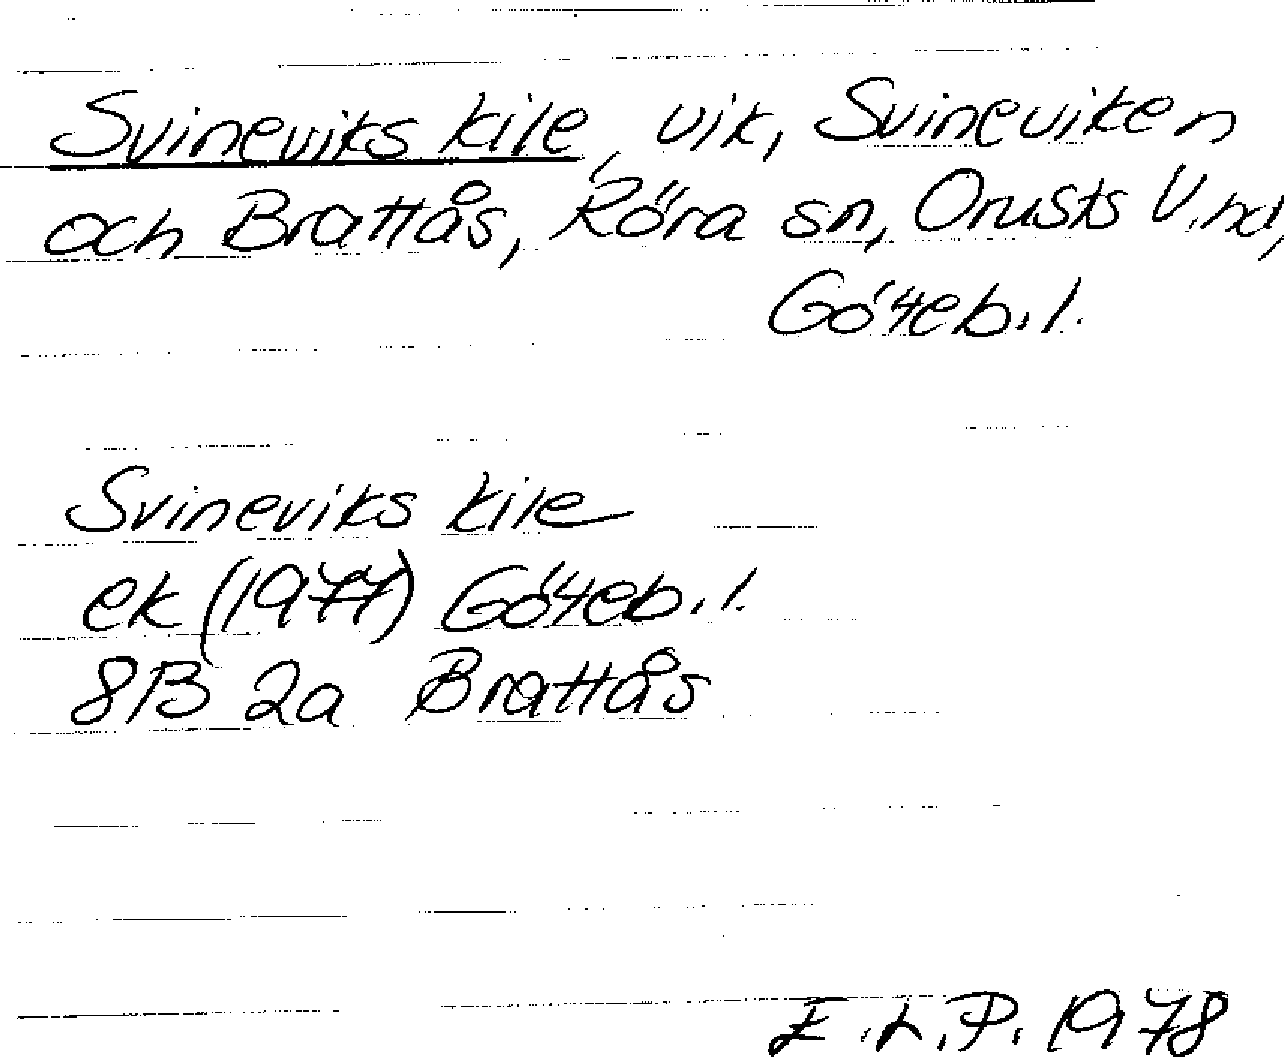 Svineviks kile, vik, Svineviken
och Brattås, Röra sn, Orusts V. hd,
Göteb. l.
Svineviks kile
ek (1977) Göteb. l.
8B 2a Brattås
E.L.P. 1978